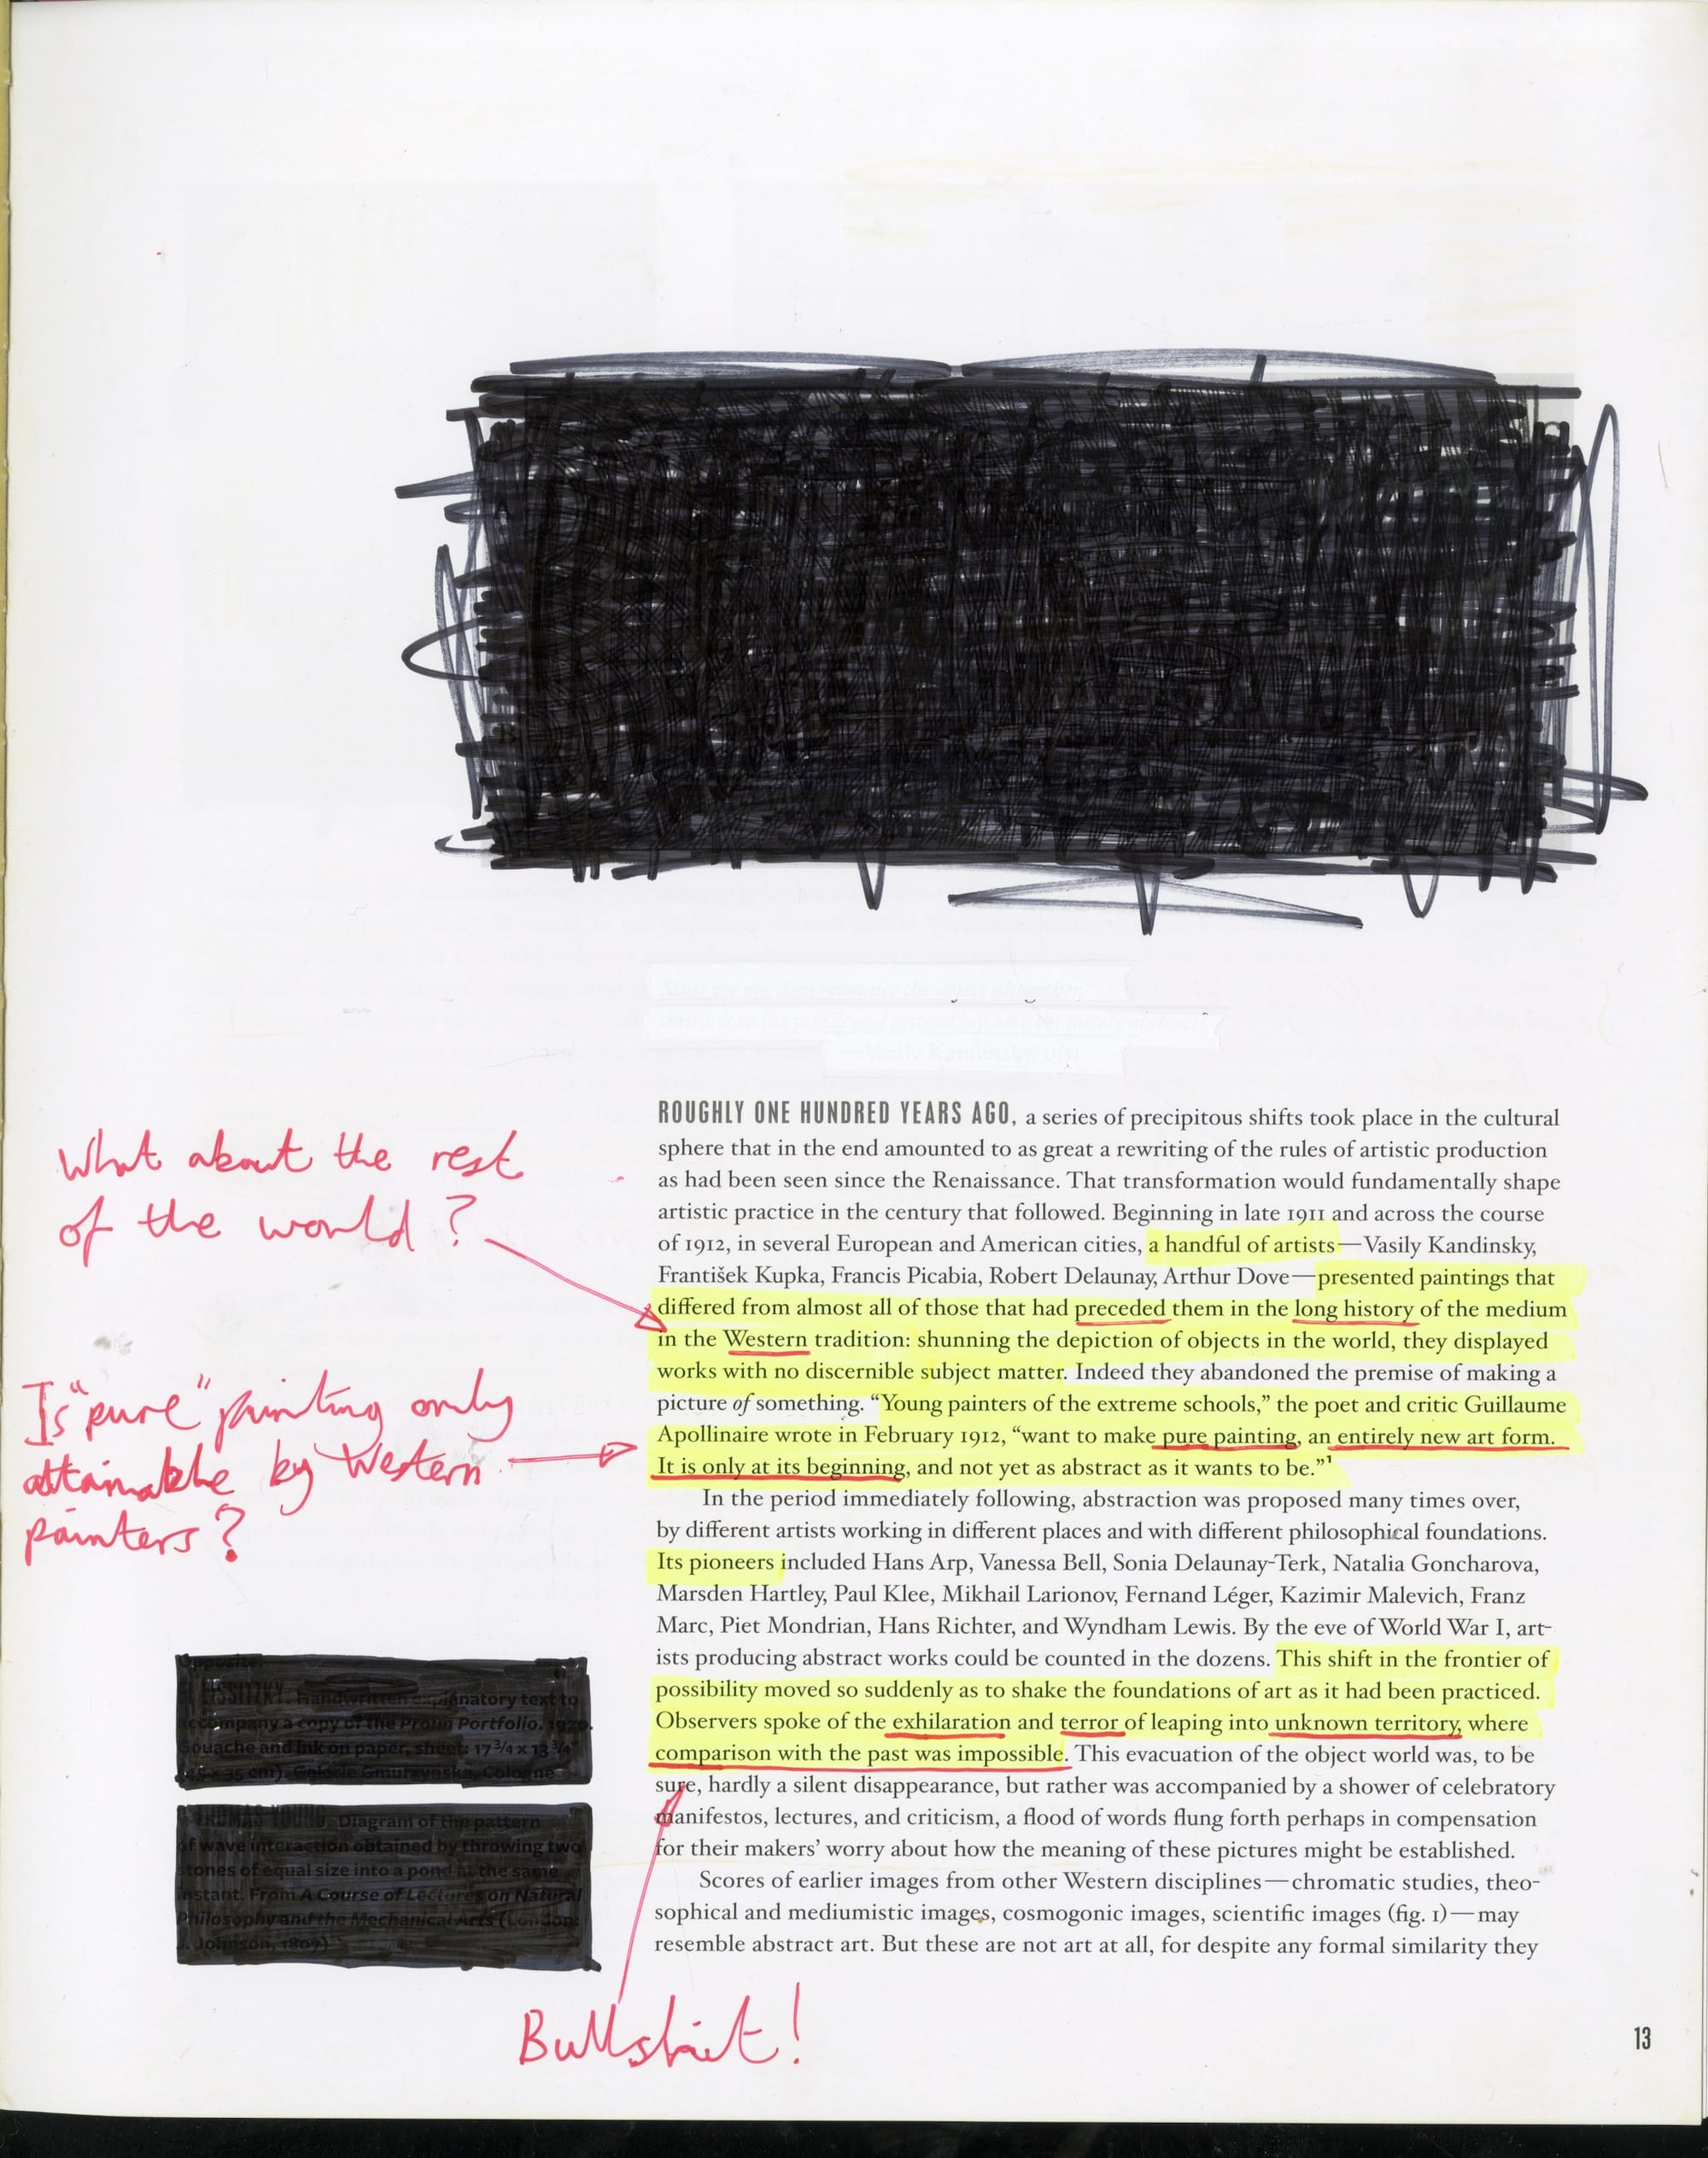 —Vasily Kandinsky, 1911
ROUGHLY ONE HUNDRED YEARS AGO, a series of precipitous shifts took place in the cultural
sphere that in the end amounted to as great a rewriting of the rules of artistic production
as had been seen since the Renaissance. That transformation would fundamentally shape
artistic practice in the century that followed. Beginning in late 1911 and across the course
of 1912, in several European and American cities, a handful of artists—Vasily Kandinsky,
František Kupka, Francis Picabia, Robert Delaunay, Arthur Dove—presented paintings that
differed from almost all of those that had preceded them in the long history of the medium
in the Western tradition: shunning the depiction of objects in the world, they displayed
works with no discernible subject matter. Indeed they abandoned the premise of making a
picture of something. “Young painters of the extreme schools,” the poet and critic Guillaume
Apollinaire wrote in February 1912, “want to make pure painting, an entirely new art form.
It is only at its beginning, and not yet as abstract as it wants to be.”1
In the period immediately following, abstraction was proposed many times over,
by different artists working in different places and with different philosophical foundations.
Its pioneers included Hans Arp, Vanessa Bell, Sonia Delaunay-Terk, Natalia Goncharova,
Marsden Hartley, Paul Klee, Mikhail Larionov, Fernand Léger, Kazimir Malevich, Franz
Marc, Piet Mondrian, Hans Richter, and Wyndham Lewis. By the eve of World War I, art-
ists producing abstract works could be counted in the dozens. This shift in the frontier of
possibility moved so suddenly as to shake the foundations of art as it had been practiced.
Observers spoke of the exhilaration and terror of leaping into unknown territory, where
comparison with the past was impossible. This evacuation of the object world was, to be
sure, hardly a silent disappearance, but rather was accompanied by a shower of celebratory
manifestos, lectures, and criticism, a flood of words flung forth perhaps in compensation
for their makers’ worry about how the meaning of these pictures might be established.
Scores of earlier images from other Western disciplines—chromatic studies, theo-
sophical and mediumistic images, cosmogonic images, scientific images (fig. 1)—may
resemble abstract art. But these are not art at all, for despite any formal similarity they
What about the rest
of the world?
Is “pure” painting only
attainable by Western
painters?
Opposite:
LISSITZKY. Handwritten explanatory text to
accompany a copy of the Proun Portfolio. 1920.
Gouache and ink on paper, sheet: 17 3/4 x 13 3/4"
x 35 cm). Galerie Gmurzynska, Cologne
THOMAS YOUNG. Diagram of the pattern
of wave interaction obtained by throwing two
stones of equal size into a pond at the same
instant. From A Course of Lectures on Natural
Philosophy and the Mechanical Arts (London:
J. Johnson, 1807)
Bullshit!
13